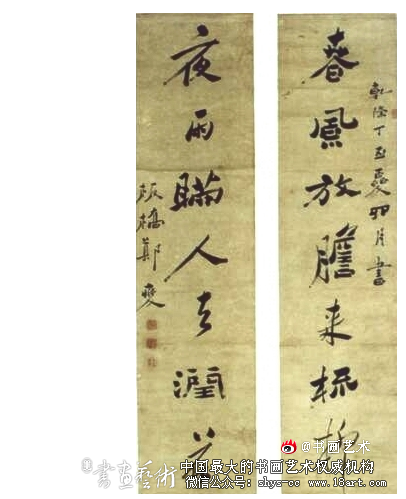 春風放膽來梳柳
乾隆丁丑
卯月書
夜雨瞞人去潤花
板橋鄭燮
@书画艺术
书画艺術
中国最大的书画艺术权威机构
微信公众号: shys-cc www.18art.com